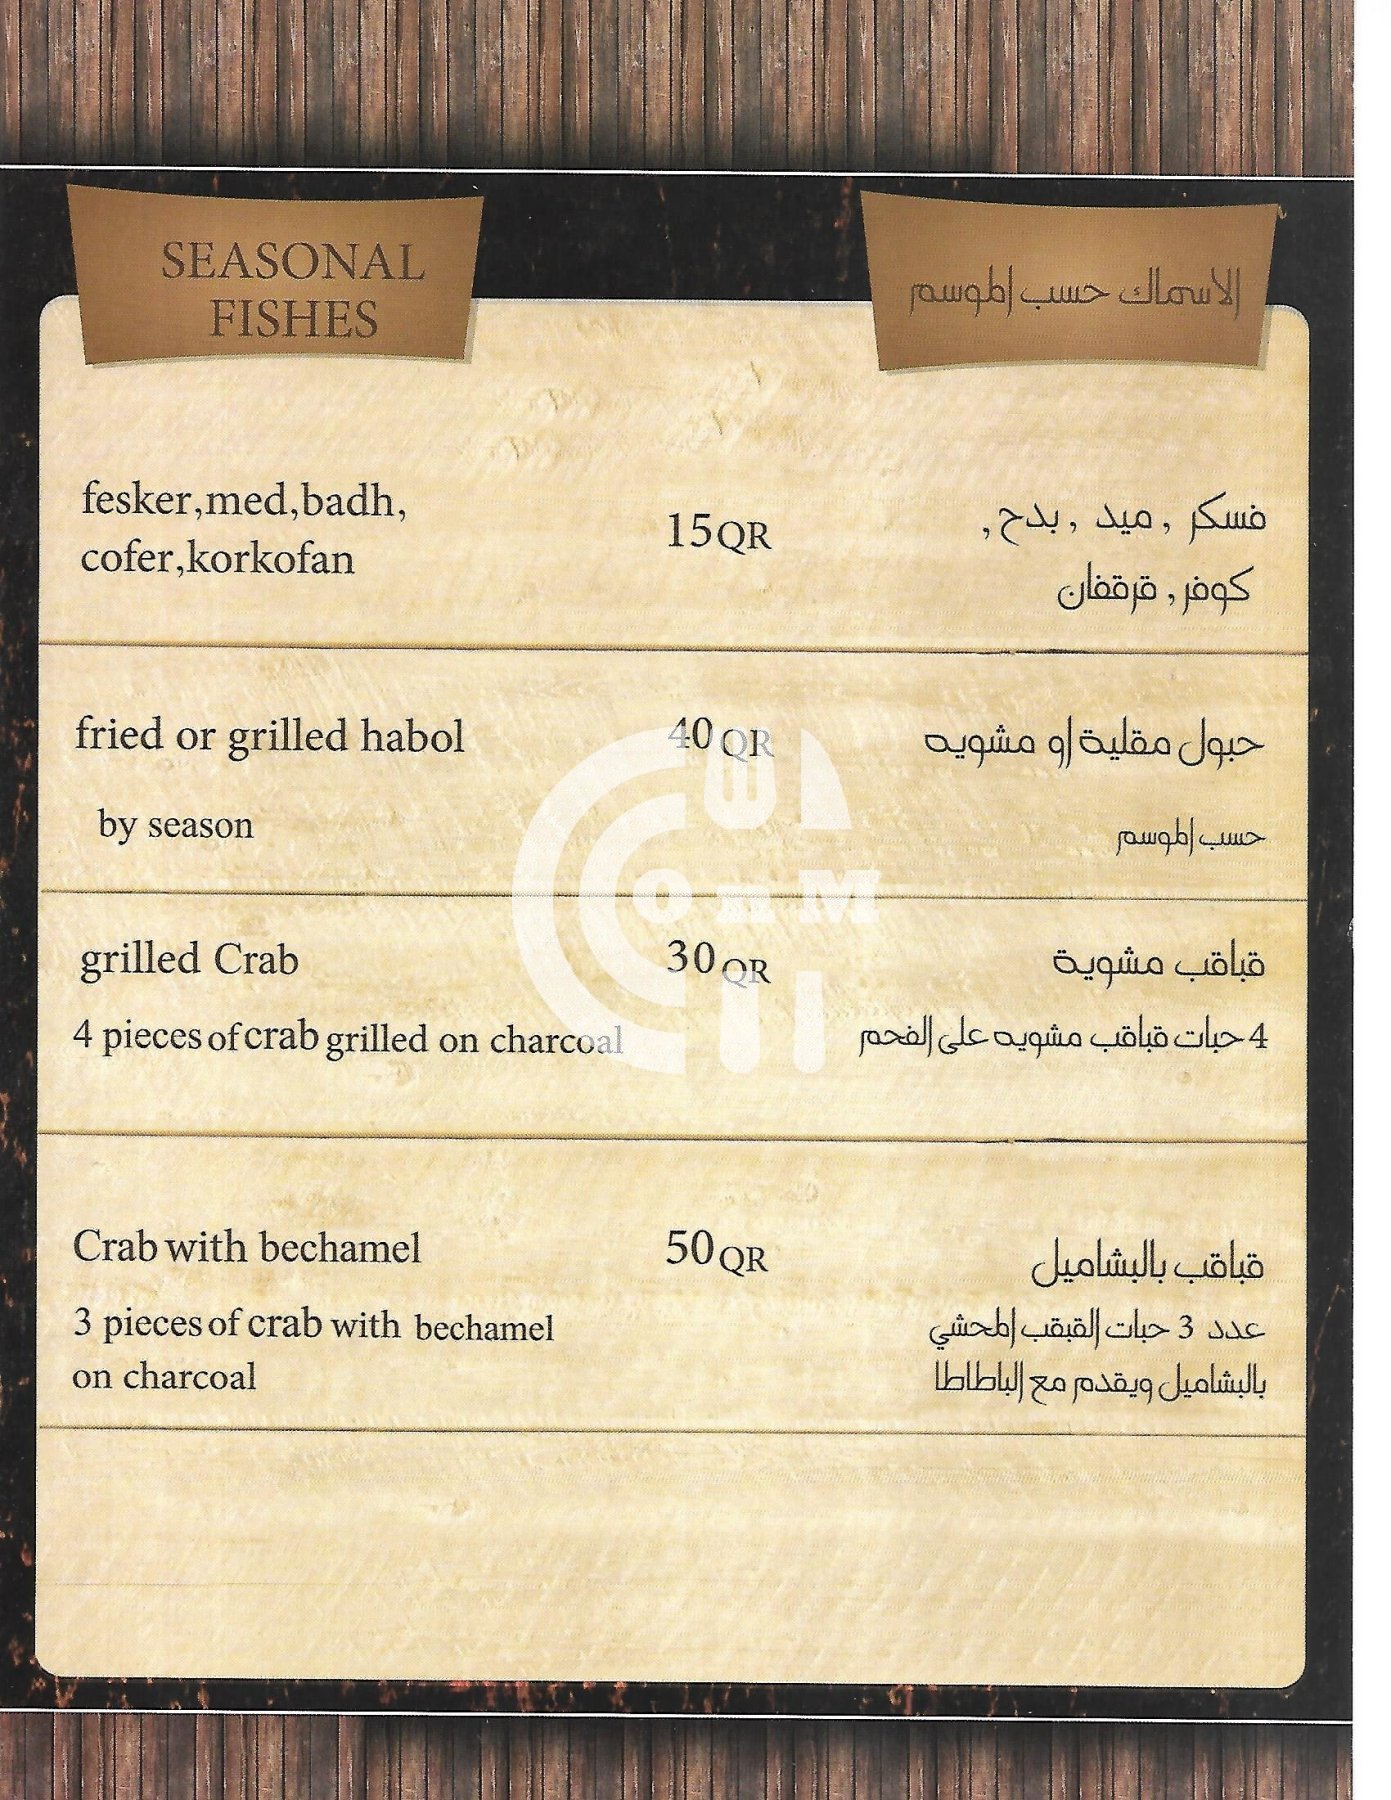 SEASONAL
FISHES
الاسماك حسب الموسم
fesker,med,badh,
cofer,korkofan
15QR
فسكر , ميد , بدح ,
كوفر , قرقفان
fried or grilled habol
40QR
حبول مقلية او مشويه
by season
حسب الموسم
grilled Crab
30QR
قباقب مشوية
4 pieces of crab grilled on charcoal
4 حبات قباقب مشويه على الفحم
Crab with bechamel
50QR
قباقب بالبشاميل
3 pieces of crab with bechamel
on charcoal
عدد 3 حبات القبقب المحشي
بالبشاميل ويقدم مع الباطاطا